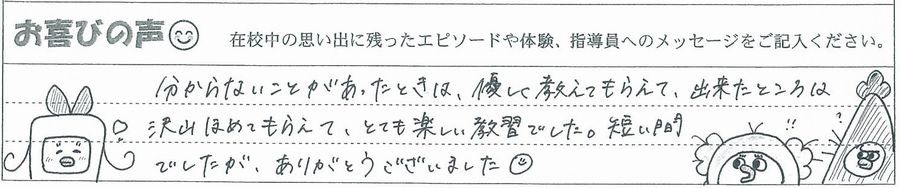 お喜びの声
在校中の思い出に残ったエピソードや体験、指導員へのメッセージをご記入ください。
分からないことがあったときは、優しく教えてもらえて、出来たところは
沢山ほめてもらえて、とても楽しい教習でした。短い間
でしたが、ありがとうございました
!!